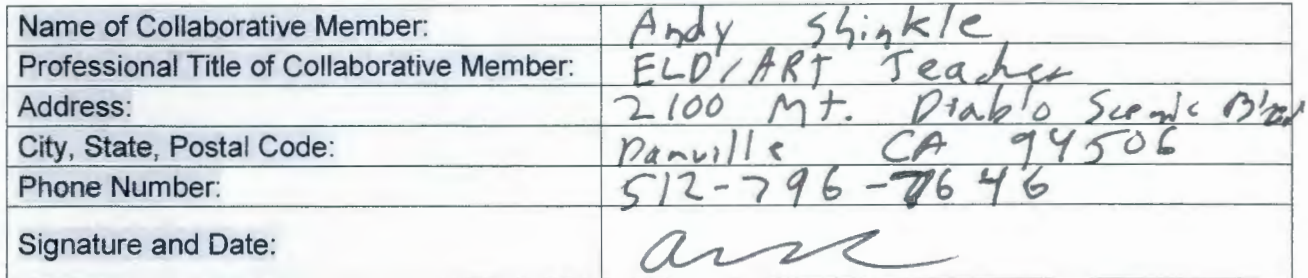 Name of Collaborative Member: Andy Shinkle
Professional Title of Collaborative Member: ELD/ART Teacher
Address: 2100 Mt. Diablo Scenic Blvd
City, State, Postal Code: Danville CA 94506
Phone Number: 512-796-7646
Signature and Date: